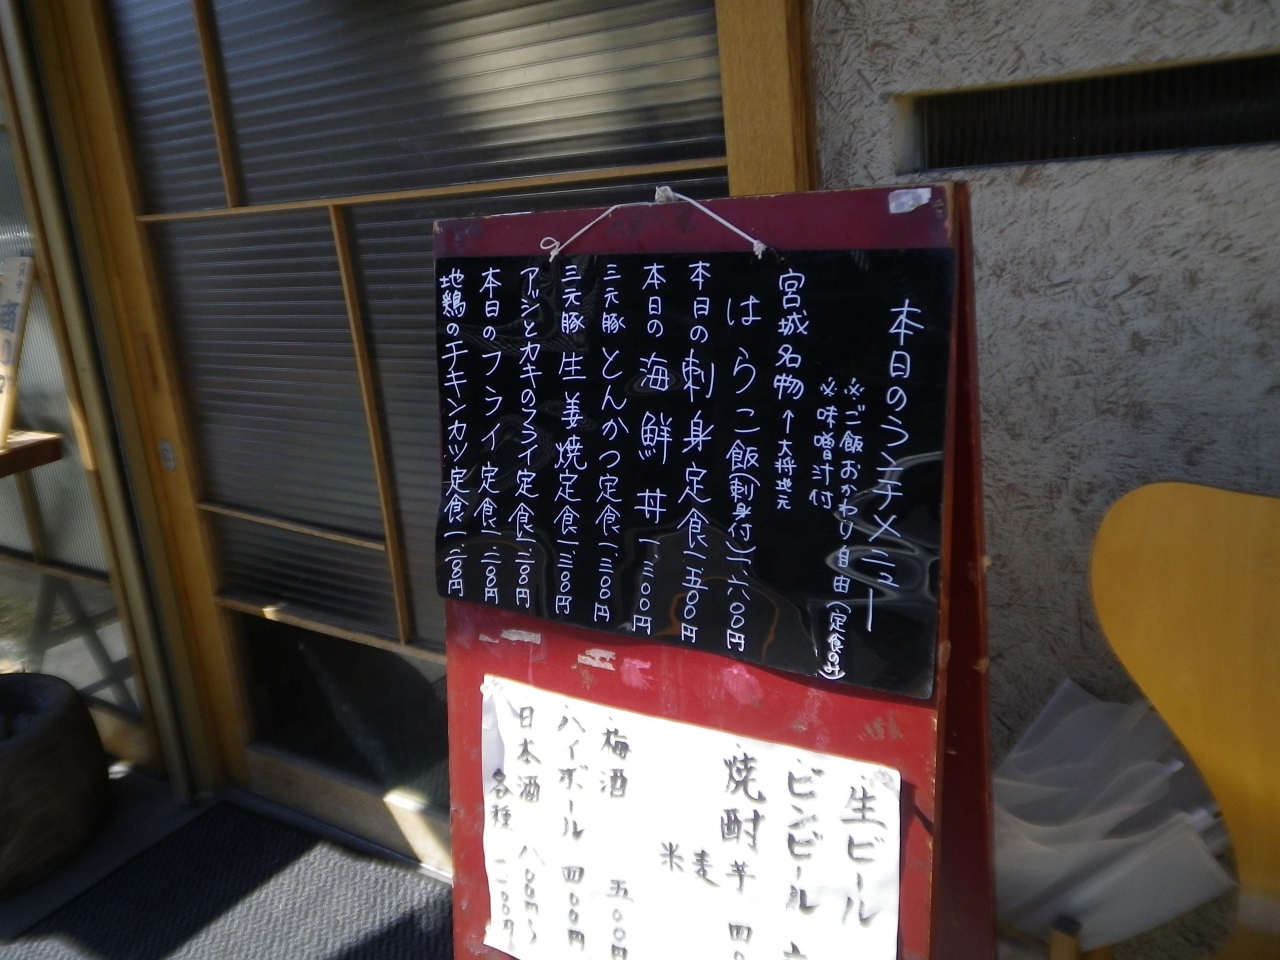 本日のランチメニュー
※ご飯おかわり自由(定食のみ)
※味噌汁付
宮城名物↑大将地元
はらこ飯(刺身付)一、六〇〇円
本日の刺身定食一、五〇〇円
本日の海鮮丼一、三〇〇円
三元豚とんかつ定食一、三〇〇円
三元豚生姜焼定食一、三〇〇円
アジとカキのフライ定食一、二〇〇円
本日のフライ定食一、二〇〇円
地鶏のチキンカツ定食一、二〇〇円
生ビール
ビンビール 六
焼酎 芋 四〇
麦
米
梅酒 五〇〇円
ハイボール 四〇〇円
日本酒 八〇〇円〜
各種 一、二〇〇円